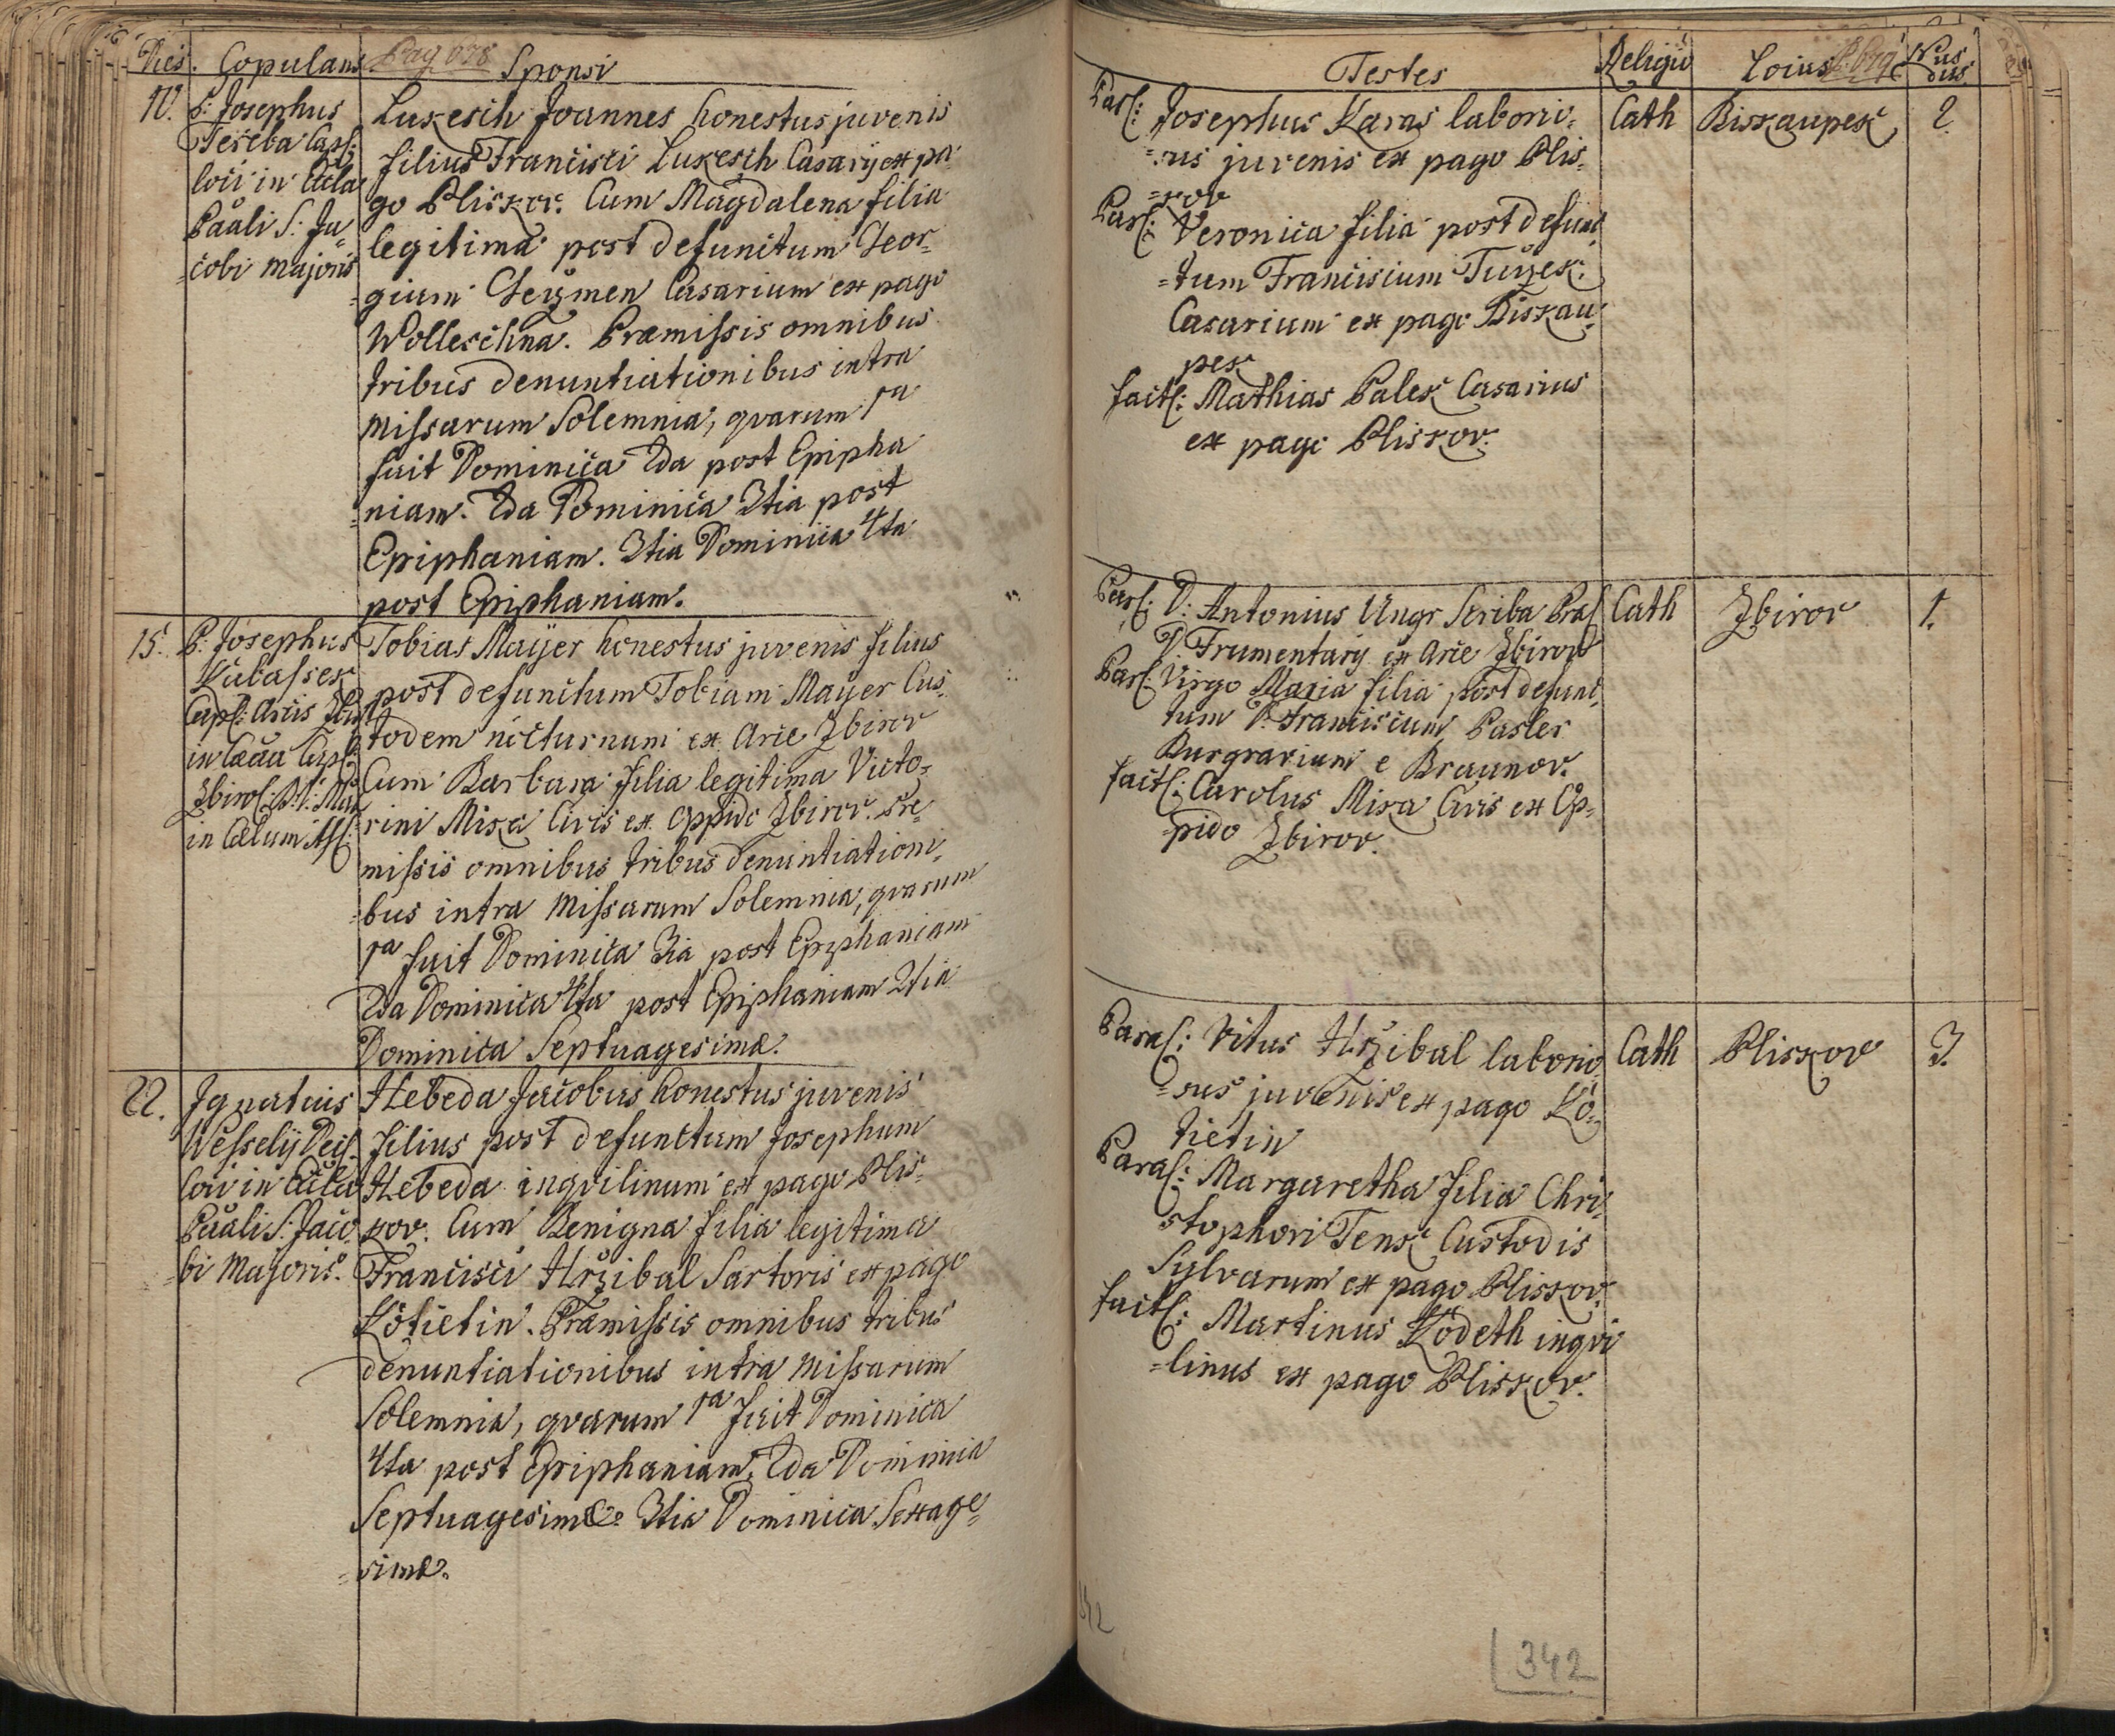 Dies. Copulans Pag 078 Sponsi
10. P: Josephus
Teřeba Capl:
loci in Eccla
Paali S: Ja=
=cobi Majoris
Lukesch Joannes honestus juvenis
filius Francisci Lukesch Casarij ex pa=
go Pliskov. Cum Magdalena filia
legitima post defunctum Geor=
=gium Cerzmen Casarium ex pago
Wolleschna. Praemissis omnibus
tribus denuntiationibus intra
Missarum Solemnia, qvarum 1a
fuit Dominica 2da post Epipha
=niam. 2da Dominica 3tia post
Epiphaniam. 3tia Dominica 4ta
post Epiphaniam.
15. P: Josephus
Capl: Arcis
in Capl:
Zbirov:
in Cœlum
Tobias Mayer honestus juvenis filius
post defunctum Tobiam Mayer Cus=
todem nocturnum ex Arce Zbirov
Cum Barbara filia legitima Victo=
rini Mixa Civis ex Oppido Zbirov. Pre=
missis omnibus tribus denuntiationi=
=bus intra Missarum Solemnia, qvarum
1a fuit Dominica 3ia post Epiphaniam
2da Dominica 4ta post Epiphaniam 3tia
Dominica Septuagesimæ.
22. Ignatius
Wesselij Decs:
loci in Eccla
Paali S: Jaco
=bi Majoris.
Hebeda Jacobus honestus juvenis
filius post defunctum Josephum
Hebeda inqvilinum ex pago Plis=
kov. Cum Benigna filia legitima
Francisci Hržibal Sartoris ex pago
Kotietin. Præmissis omnibus tribus
denuntiationibus intra Missarum
Solemnia, qvarum 1a fuit Dominica
4ta post Epiphaniam. 2da Dominica
Septuagesimæ 3tia Dominica Sexage=
=simæ.
Testes Religio Locus Nus
dus
Pasl: Josephus Karas laborio= Cath Biskaupek 2.
=sus juvenis ex pago Plis=
=kov
Pasl: Veronica filia post defunc=
=tum Franciscum Turzek
Casarium ex pago Biskau=
pek
factl: Mathias Palek Casarius
ex pago Pliskov.
Pasl: D: Antonius Ungr Scriba Cath Zbirov 1.
D. Frumentarij ex Arce Zbirov
Pasl: Virgo Maria filia post defunc=
tum D: Franciscum Pasler
Burgravium e Braunov.
factl: Carolus Mixa Civis ex Op=
=pido Zbirov.
Parasl: Vitus Hržibal laborio Cath Pliskov 3.
=sus juvenis ex pago Ko=
tietin
Parasl: Margaretha filia Chri=
stophori Tensc Custodis
Sylvarum ex pago Pliskov.
factl: Martinus Kodeth inqvi
=linus ex pago Pliskov.
342